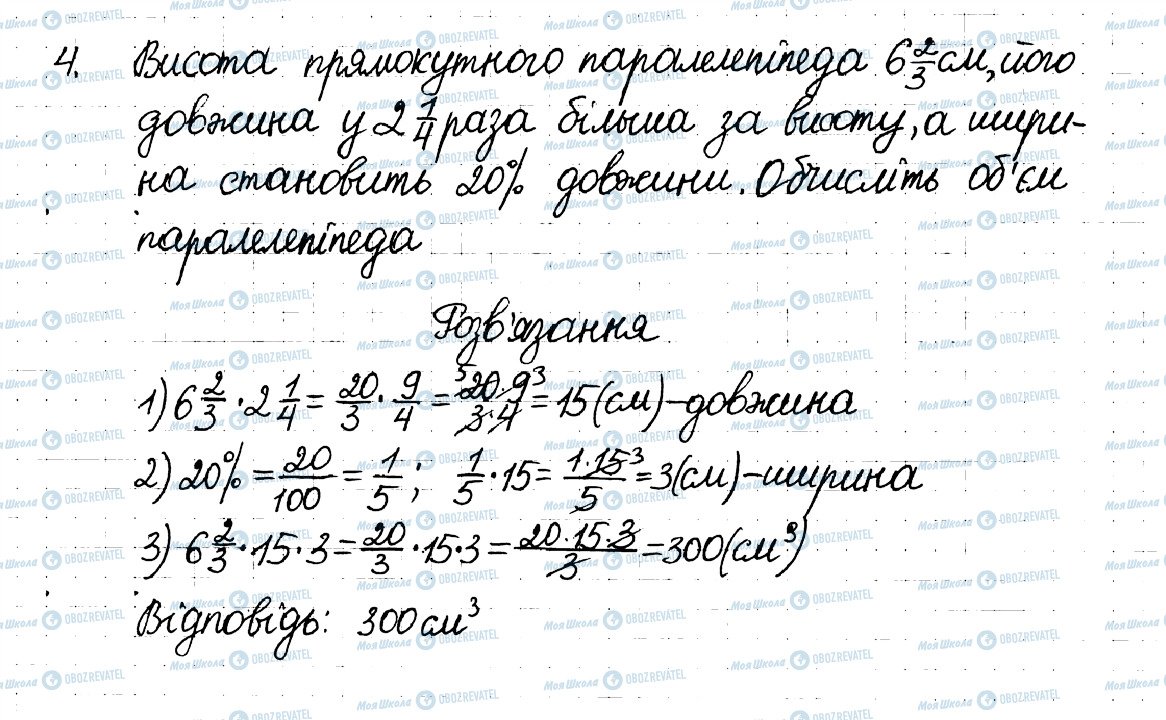 4. Висота прямокутного паралелепіпеда 6 2/3 см, його
довжина у 2 1/4 раза більша за висоту, а шири-
на становить 20% довжини. Обчисліть об'єм
паралелепіпеда
Розв'язання
1) 6 2/3 · 2 1/4 = 20/3 · 9/4 = 5 20 · 9 3 / 3 · 4 = 15 (см) – довжина
2) 20% = 20/100 = 1/5 ; 1/5 · 15 = 1 · 15 3 / 5 = 3 (см) – ширина
3) 6 2/3 · 15 · 3 = 20/3 · 15 · 3 = 20 · 15 · 3 / 3 = 300 (см³)
Відповідь: 300 см³
Моя Школа OBOZREVATEL